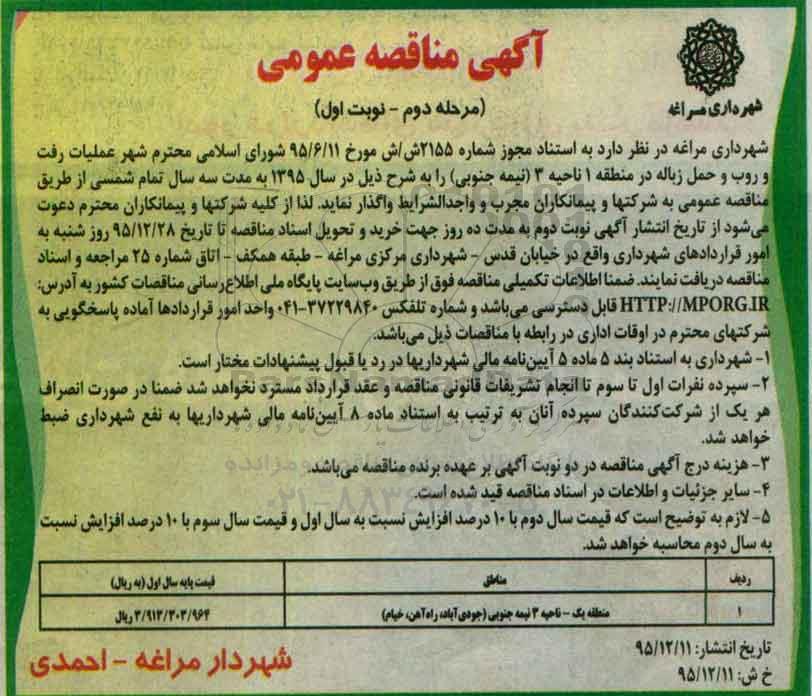 آگهی مناقصه عمومی
(مرحله دوم - نوبت اول)
شهرداری مراغه
شهرداری مراغه در نظر دارد به استناد مجوز شماره ۲۱۵۵ش/ش مورخ ۹۵/۶/۱۱ شورای اسلامی محترم شهر عملیات رفت
و روب و حمل زباله در منطقه ۱ ناحیه ۳ (نیمه جنوبی) را به شرح ذیل در سال ۱۳۹۵ به مدت سه سال تمام شمسی از طریق
مناقصه عمومی به شرکتها و پیمانکاران مجرب و واجدالشرایط واگذار نماید. لذا از کلیه شرکتها و پیمانکاران محترم دعوت
می‌شود از تاریخ انتشار آگهی نوبت دوم به مدت ده روز جهت خرید و تحویل اسناد مناقصه تا تاریخ ۹۵/۱۲/۲۸ روز شنبه به
امور قراردادهای شهرداری واقع در خیابان قدس - شهرداری مرکزی مراغه - طبقه همکف - اتاق شماره ۲۵ مراجعه و اسناد
مناقصه دریافت نمایند. ضمنا اطلاعات تکمیلی مناقصه فوق از طریق وب‌سایت پایگاه ملی اطلاع‌رسانی مناقصات کشور به آدرس:
HTTP://MPORG.IR قابل دسترسی می‌باشد و شماره تلفکس ۳۷۲۲۹۸۴۰-۰۴۱ واحد امور قراردادها آماده پاسخگویی به
شرکتهای محترم در اوقات اداری در رابطه با مناقصات ذیل می‌باشد.
۱- شهرداری به استناد بند ۵ ماده ۵ آیین‌نامه مالی شهرداریها در رد یا قبول پیشنهادات مختار است.
۲- سپرده نفرات اول تا سوم تا انجام تشریفات قانونی مناقصه و عقد قرارداد مسترد نخواهد شد ضمنا در صورت انصراف
هر یک از شرکت‌کنندگان سپرده آنان به ترتیب به استناد ماده ۸ آیین‌نامه مالی شهرداریها به نفع شهرداری ضبط
خواهد شد.
۳- هزینه درج آگهی مناقصه در دو نوبت آگهی بر عهده برنده مناقصه می‌باشد.
۴- سایر جزئیات و اطلاعات در اسناد مناقصه قید شده است.
۵- لازم به توضیح است که قیمت سال دوم با ۱۰ درصد افزایش نسبت به سال اول و قیمت سال سوم با ۱۰ درصد افزایش نسبت
به سال دوم محاسبه خواهد شد.
ردیف مناطق قیمت پایه سال اول (به ریال)
۱ منطقه یک - ناحیه ۳ نیمه جنوبی (جودی‌آباد، راه‌آهن، خیام) ۳/۹۱۳/۳۰۳/۹۶۴ ریال
تاریخ انتشار: ۹۵/۱۲/۱۱
خ ش: ۹۵/۱۲/۱۱
شهردار مراغه - احمدی